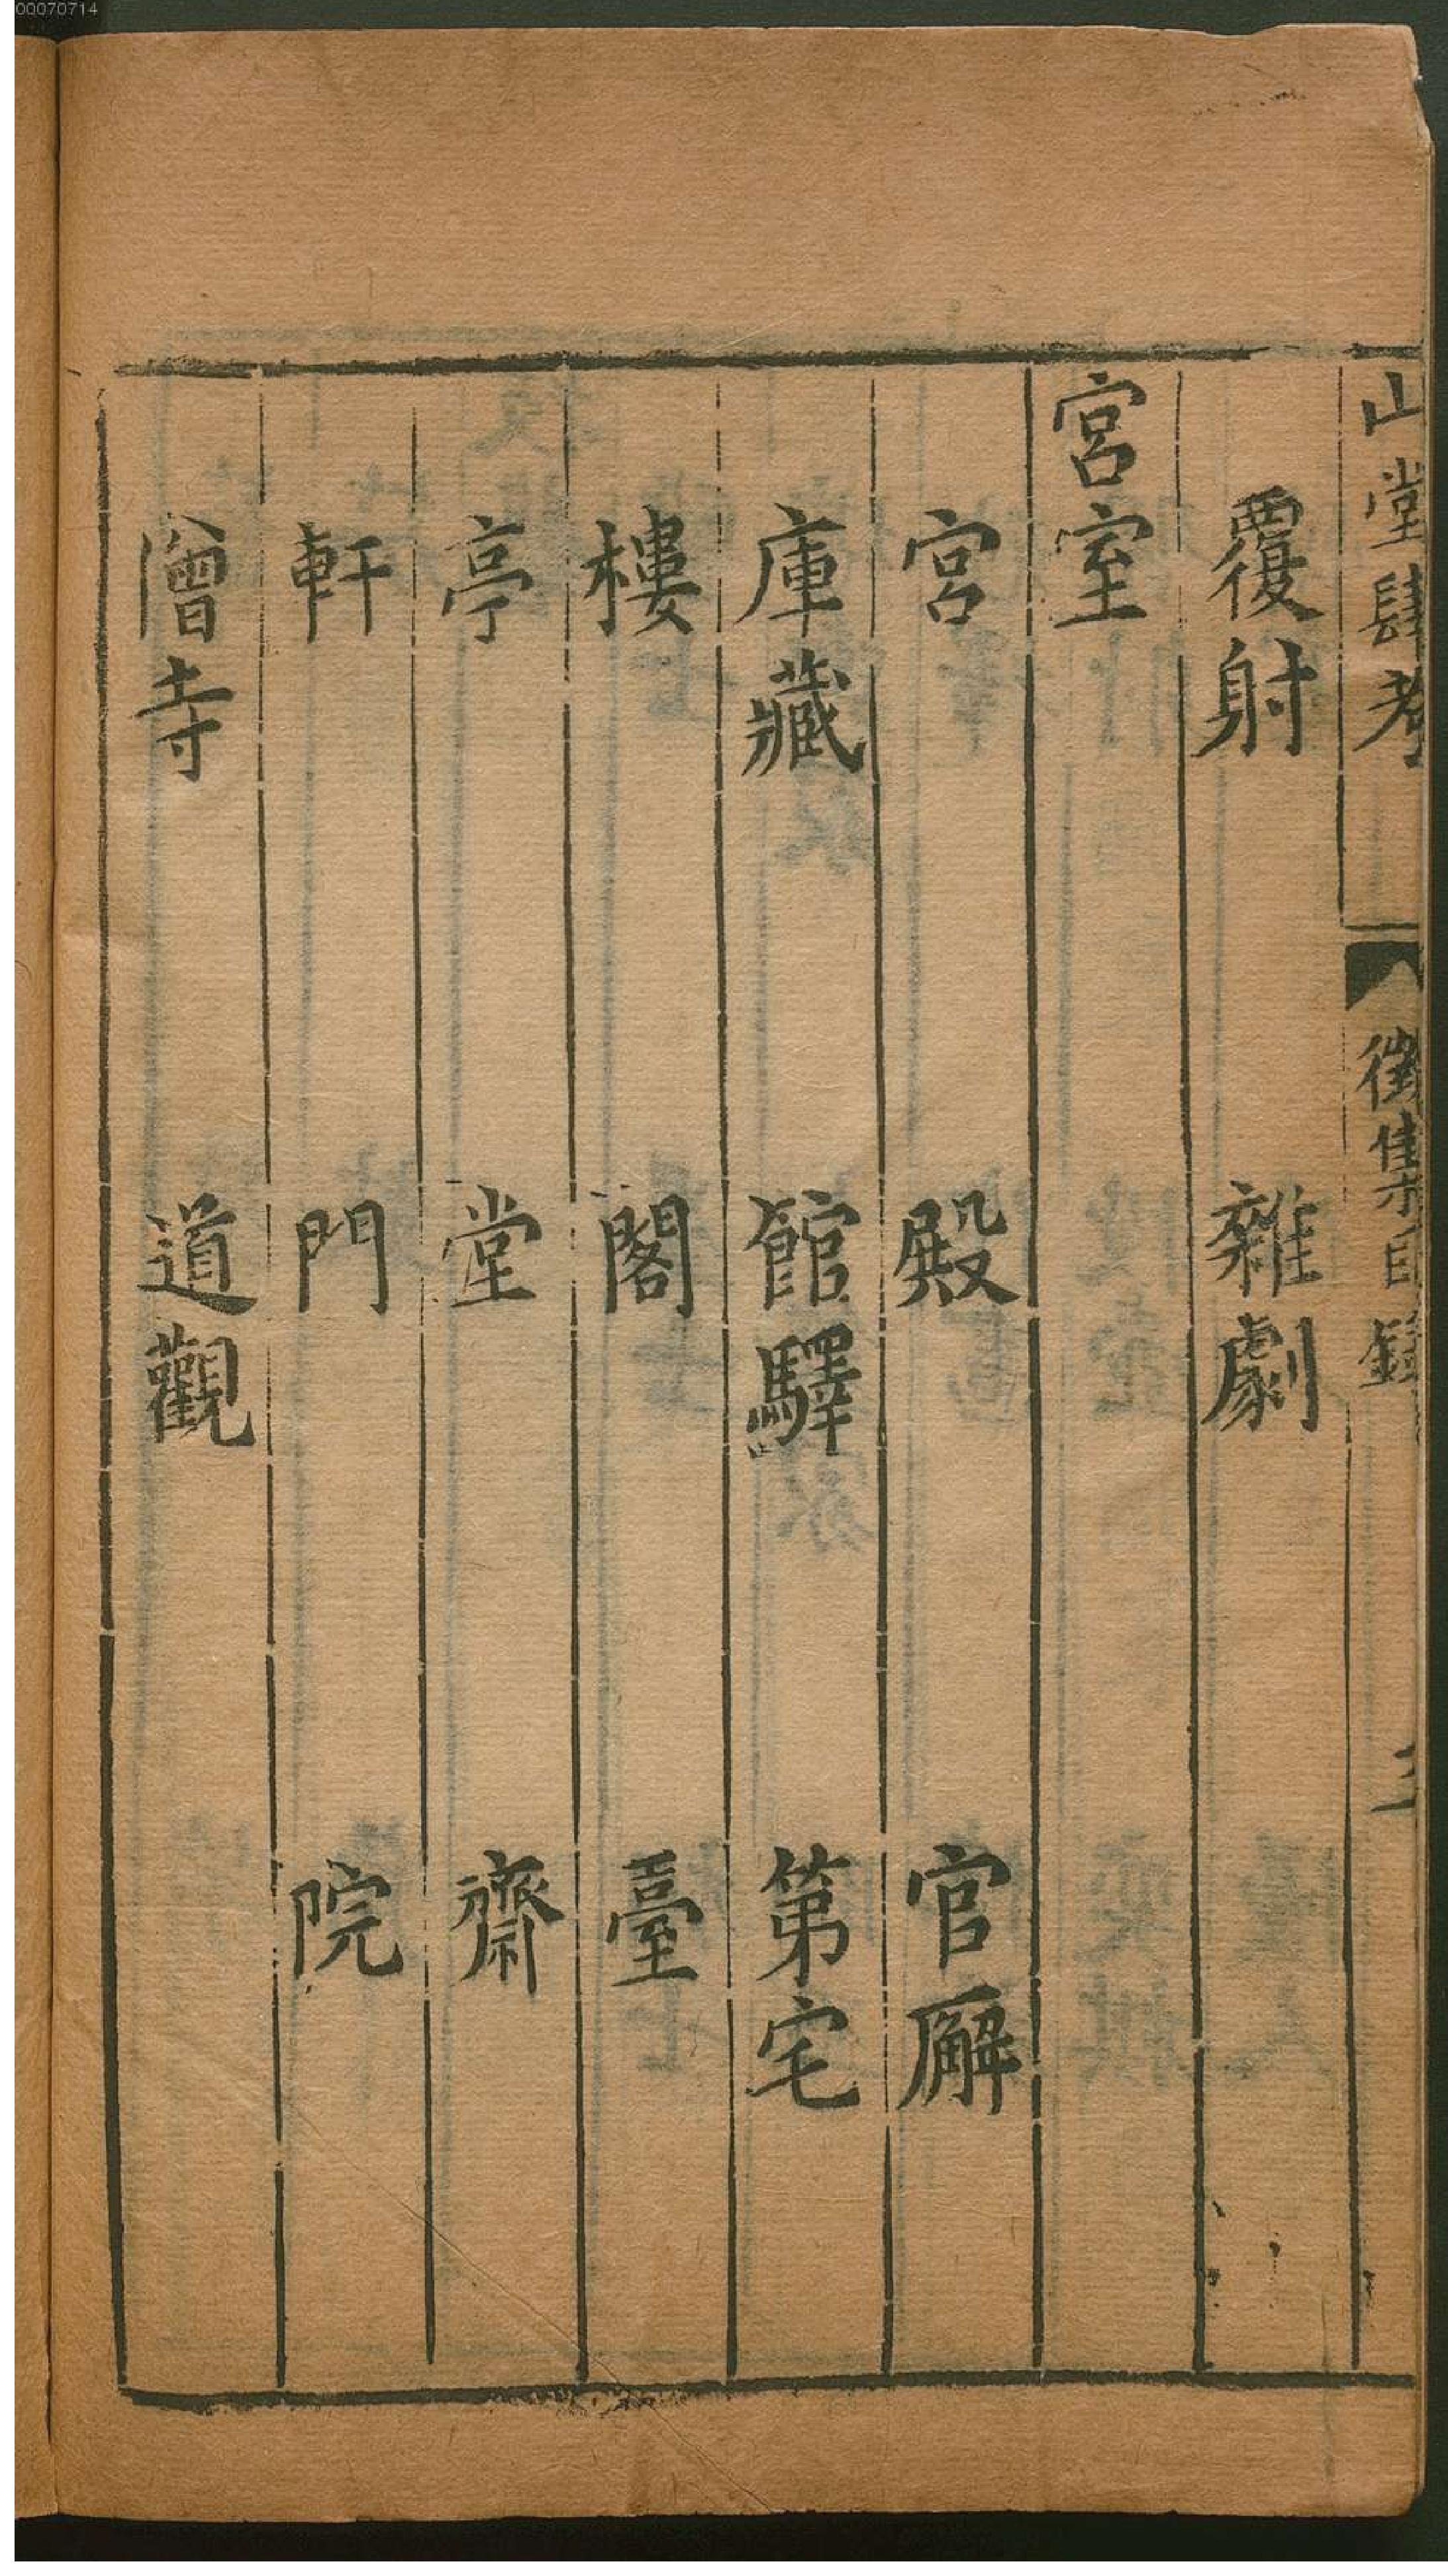 00070714
山堂肆考
徵集目錄
覆射 雜劇
宮室
宮 殿 官廨
庫藏 館驛 第宅
樓 閣 臺
亭 堂 齋
軒 門 院
僧寺 道觀